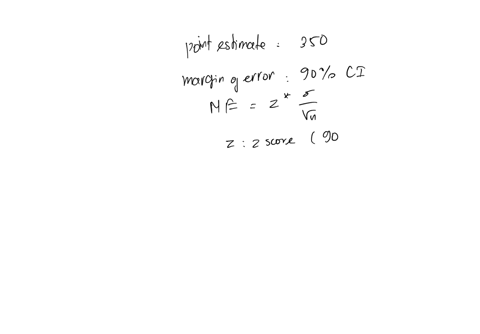 point estimate : 350
margin of error : 90% CI
ME = z * σ / √n
z : z score ( 90